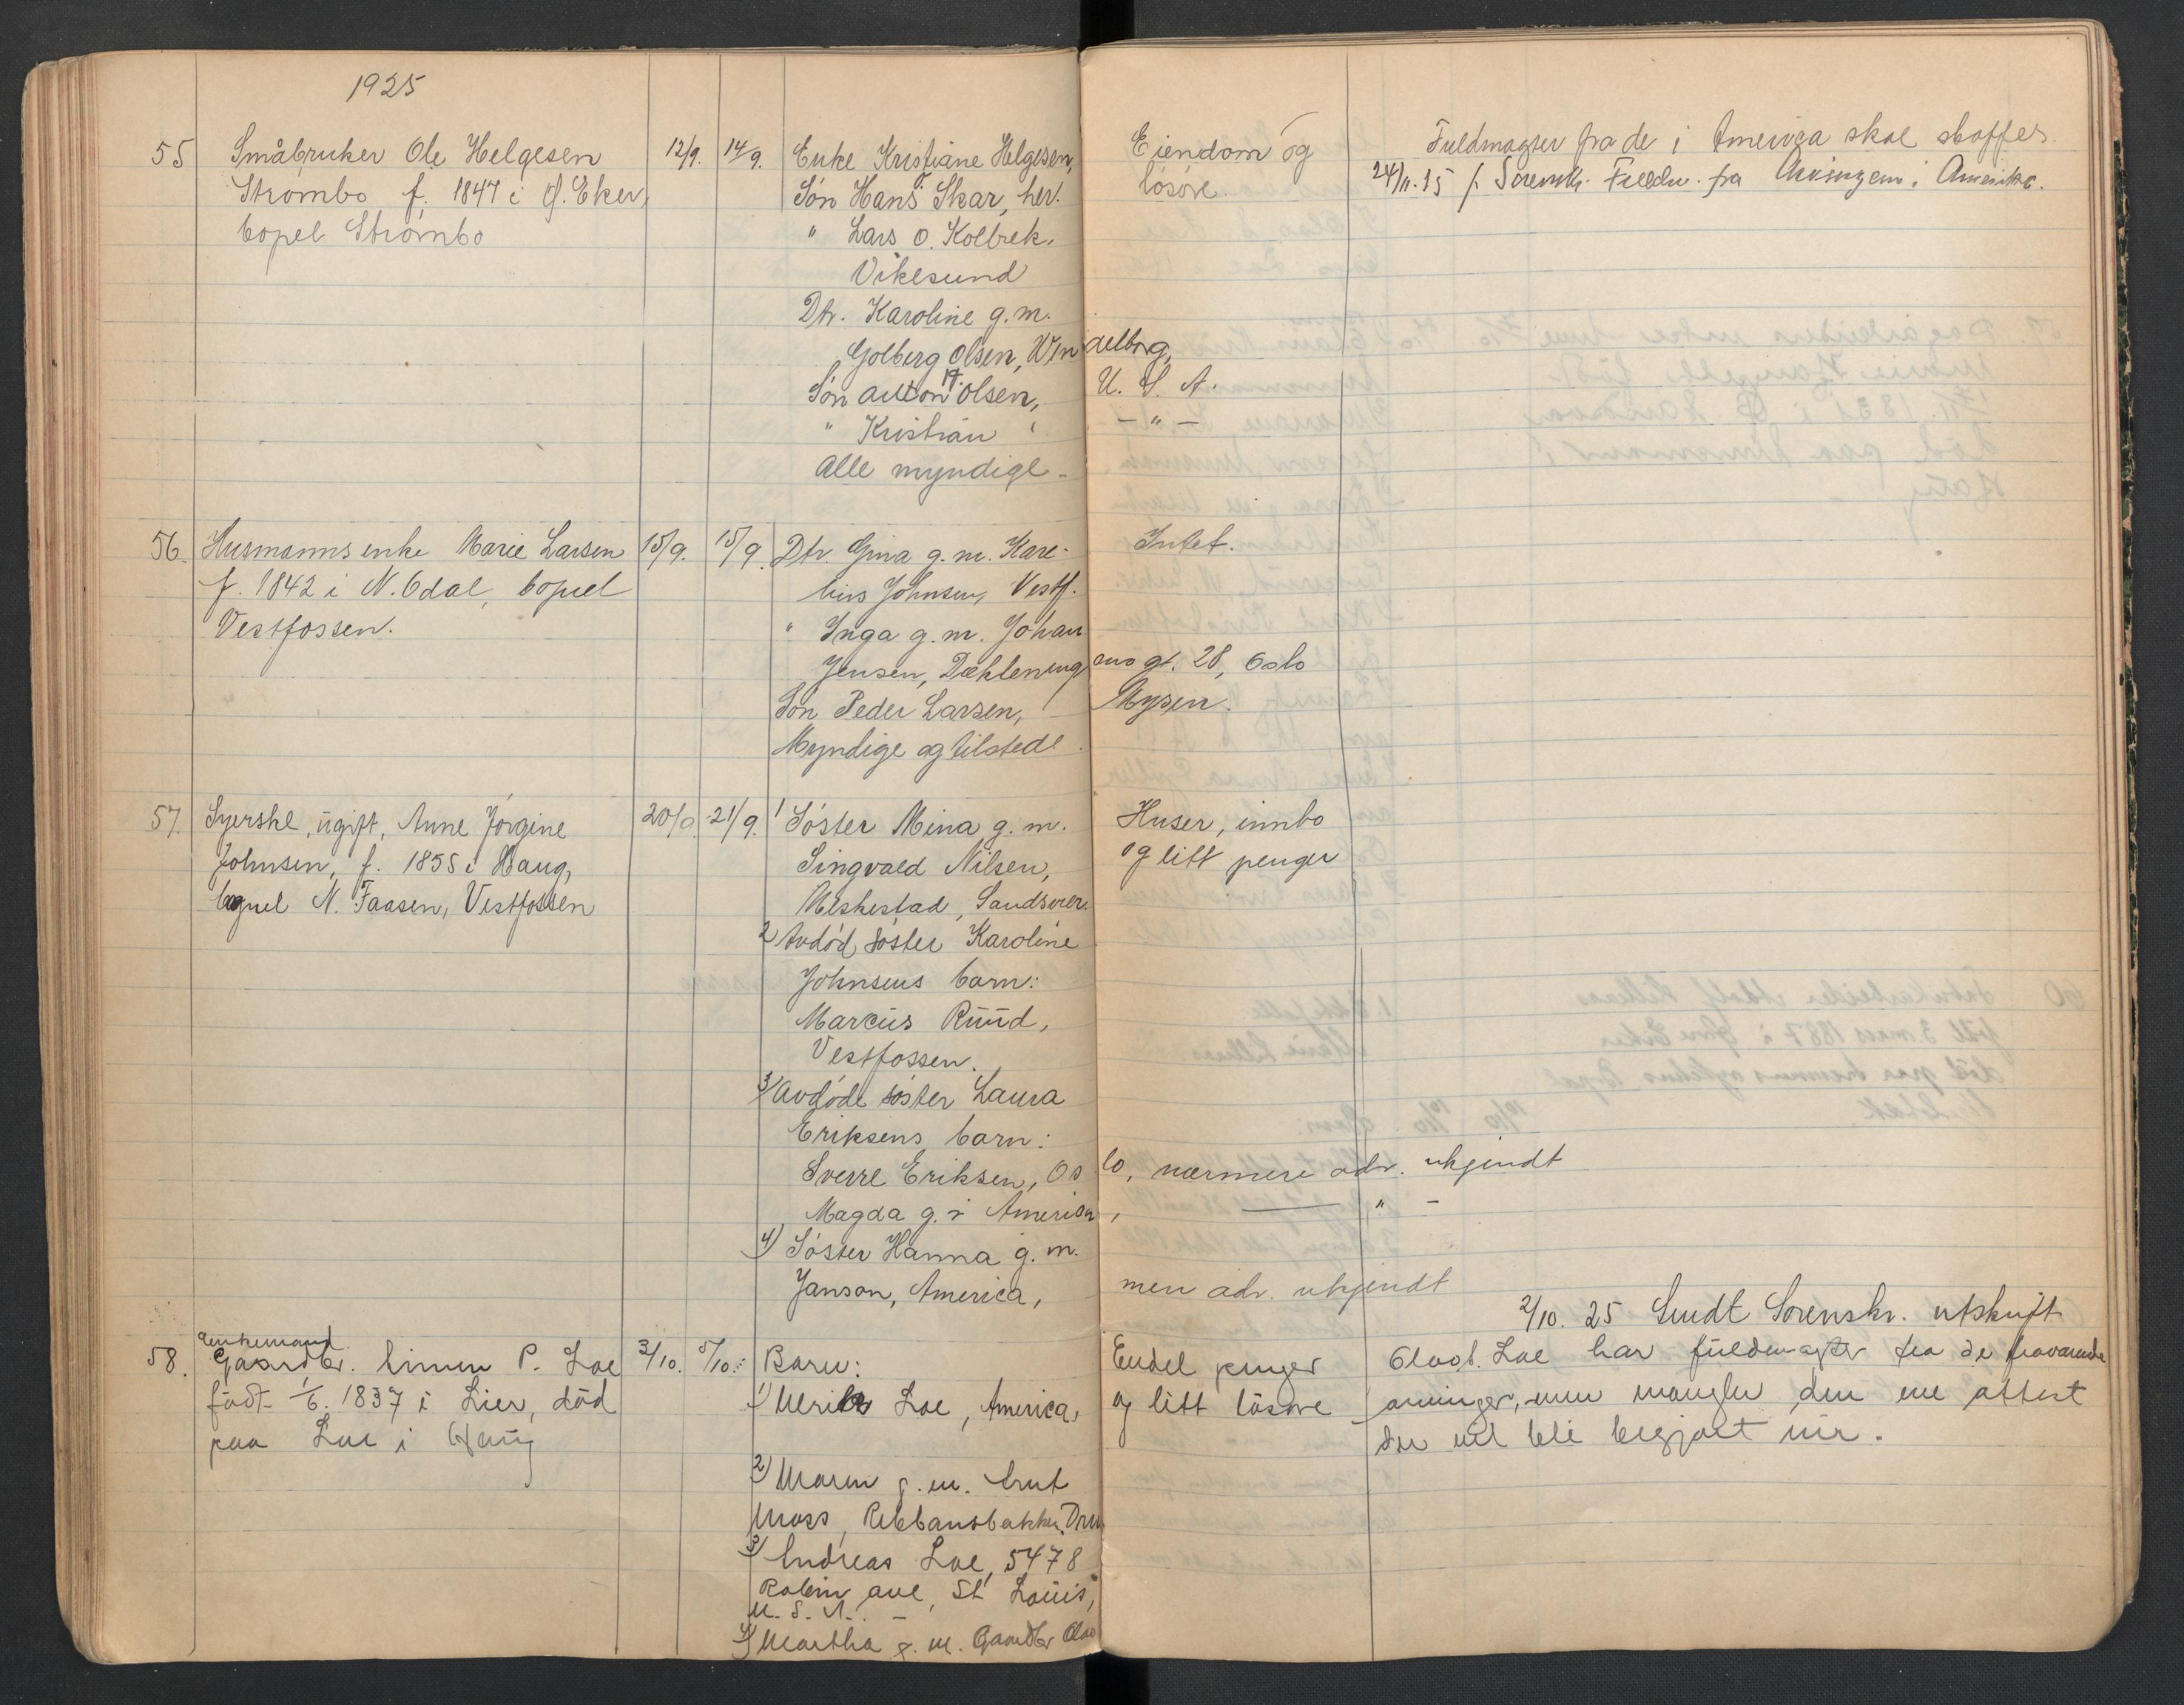 1925
55 Småbruker Ole Helgesen 12/9. 14/9. Enke Kristiane Helgesen, Eiendom og Fuldmagter fra de i Amerika skal skaffes.
Strømbo f. 1847 i Ø. Eker, Søn Hans O. Skar, her. løsøre. 24/11-25 f. Sorenskr. Fuldm. fra Arvingene i Amerika.
bopel Strømbo " Lars O. Kolbrek,
Vikesund
Dtr. Karoline g. m.
Golberg Olsen,
Søn Anton H. Olsen, U. S. A.
" Kristian " - " -
Alle myndige -
56. Husmannsenke Marie Larsen 15/9. 15/9. Dtr. Gina g. m. Kare- Intet.
f. 1842 i N. Odal, bopel lius Johnsen, Vestf.
Vestfossen. " Inga g. m. Johan
Jensen, Dæhleneng ens gt. 28, Oslo
Søn Peder Larsen, Mysen.
Myndige og tilstede.
57. Syerske, ugift, Anne Jørgine 20/9 21/9. 1 Søster Mina g. m. Huser, innbo
Johnsen, f. 1855 i Haug, Singvald Nilsen, og litt penger
bopel N. Faasen, Vestfossen Meskestad, Sandsver.
2 Avdød søster Karoline
Johnsens barn:
Marcus Ruud,
Vestfossen.
3) Avdøde søster Laura
Eriksens barn:
Sverre Eriksen, Oslo, nærmere adr. ukjendt
Magda g. i America, — " —
4) Søster Hanna g. m.
Janson, America, men adr. ukjendt
2/10. 25 Sendt Sorenskr. utskrift
Enkemand
58. Gaardbr. Simen P. Loe 3/10. 5/10. Barn: Endel penger Olaf S. Loe har fuldmagter fra de fraværende
født 1/6. 1837 i Lier, død 1) Ulrik Loe, America, og litt løsøre arvinger, men mangler den ene attest
paa Loe i Haug den vil bli besjørt
2) Maren g. m. Knut
Moss, Drm
3) Andreas Loe, 5478
Robin ave, St Louis,
U. S. A. -
4) Martha g. m. Gaardbr